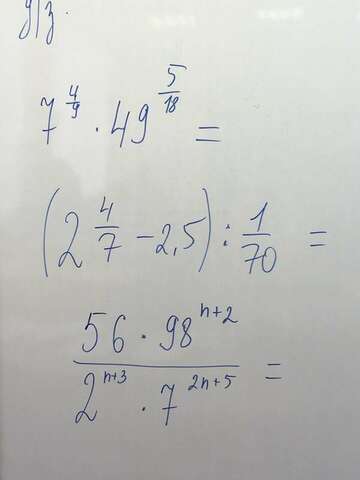 д/з.
7^{4/9} · 49^{5/18} =
(2 4/7 - 2,5) : 1/70 =
\frac{56 · 98^{n+2}}{2^{n+3} · 7^{2n+5}} =